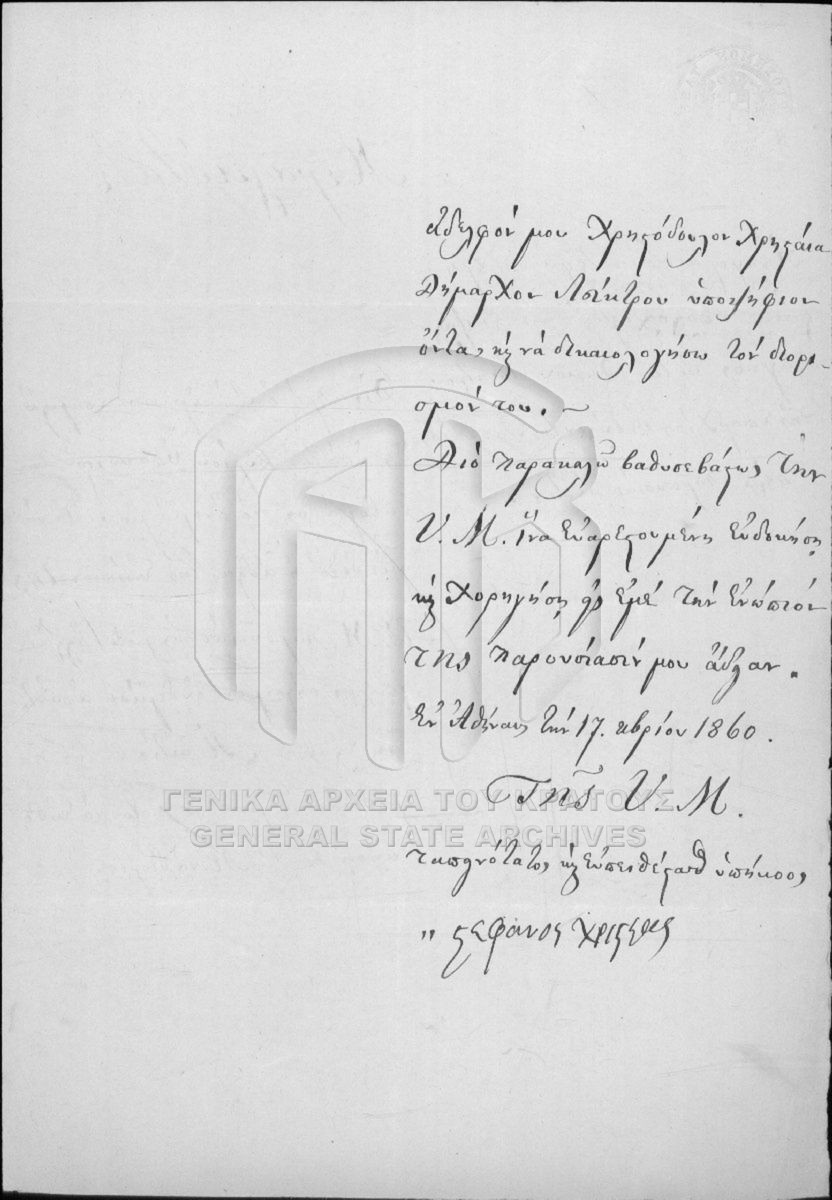 ἀδελφόν μου Χρηστόδουλον Χρηστέα
Δήμαρχον Λεύκτρου ὑποψήφιον
ὄντα, καὶ νά δικαιολογήσω τόν διορι-
σμόν του. —
Διό παρακαλῶ βαθυσεβάστως τήν
Υ. Μ. ἵνα εὐαρεστουμένη εὐδοκήσῃ
καὶ χορηγήσῃ εἰς ἐμέ τήν ἐνώπιόν
της παρουσίασίν μου ἄδειαν.
Ἐν Ἀθήναις τήν 17. 8βρίου 1860.
Τῆς Υ. Μ.
ταπεινότατος καὶ εὐπειθέστατος ὑπήκοος
" Στέφανος Χριστέας
ΓΕΝΙΚΑ ΑΡΧΕΙΑ ΤΟΥ ΚΡΑΤΟΥΣ
GENERAL STATE ARCHIVES